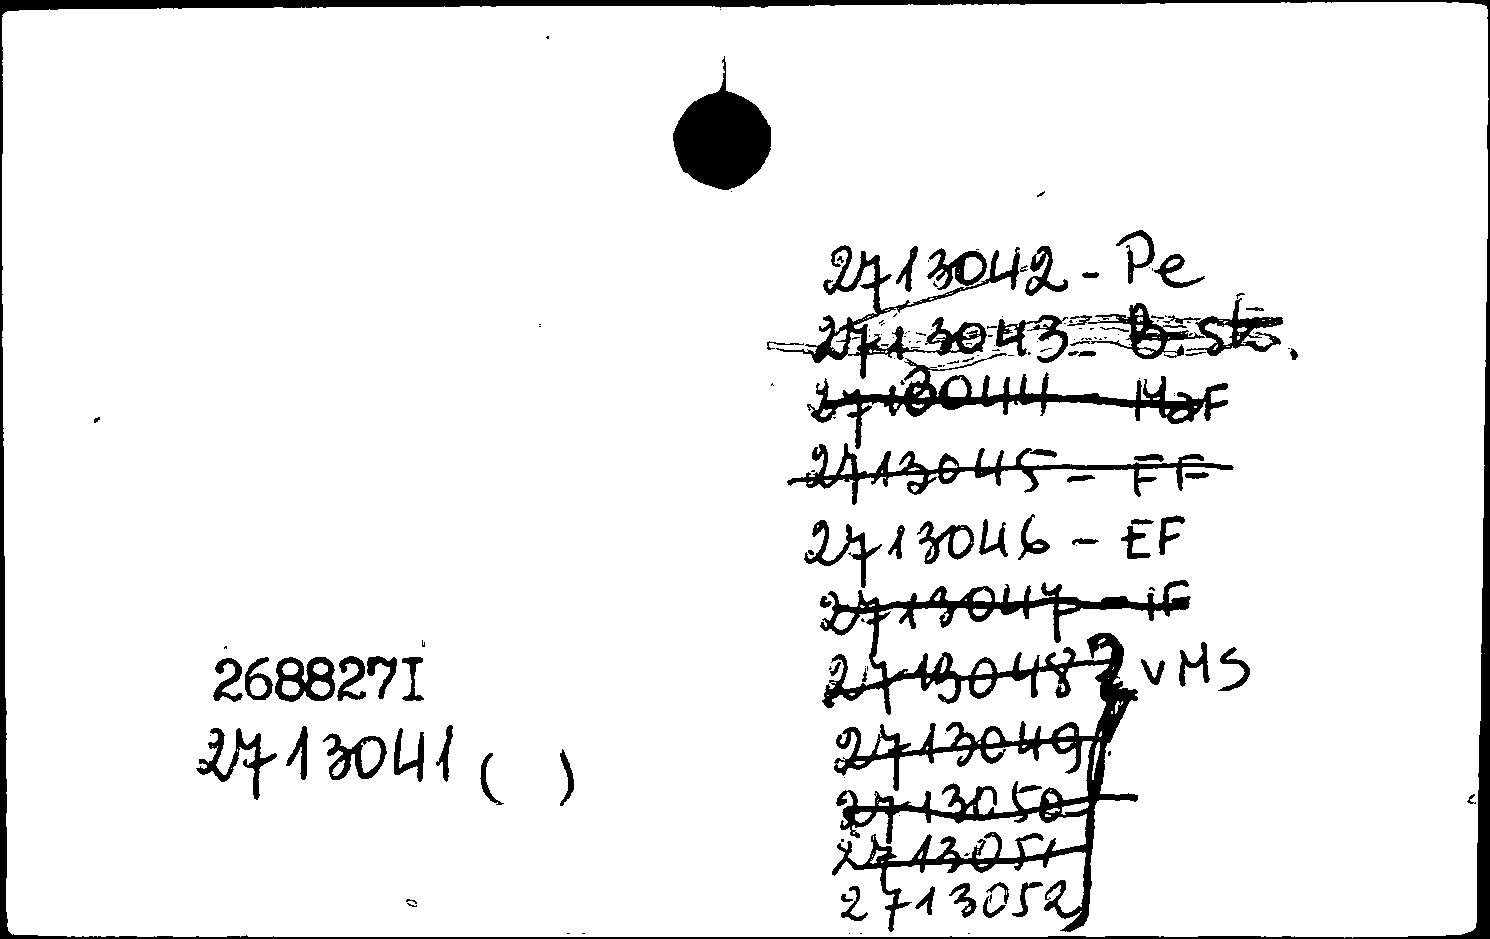 2713042 - Pe
2713043 - B. st.
2713044 - MaF
2713045 - FF
2713046 - EF
2713047 - IF
2713048 } vMS
2713049
2713050
2713051
2713052
268827I
2713041 ( )